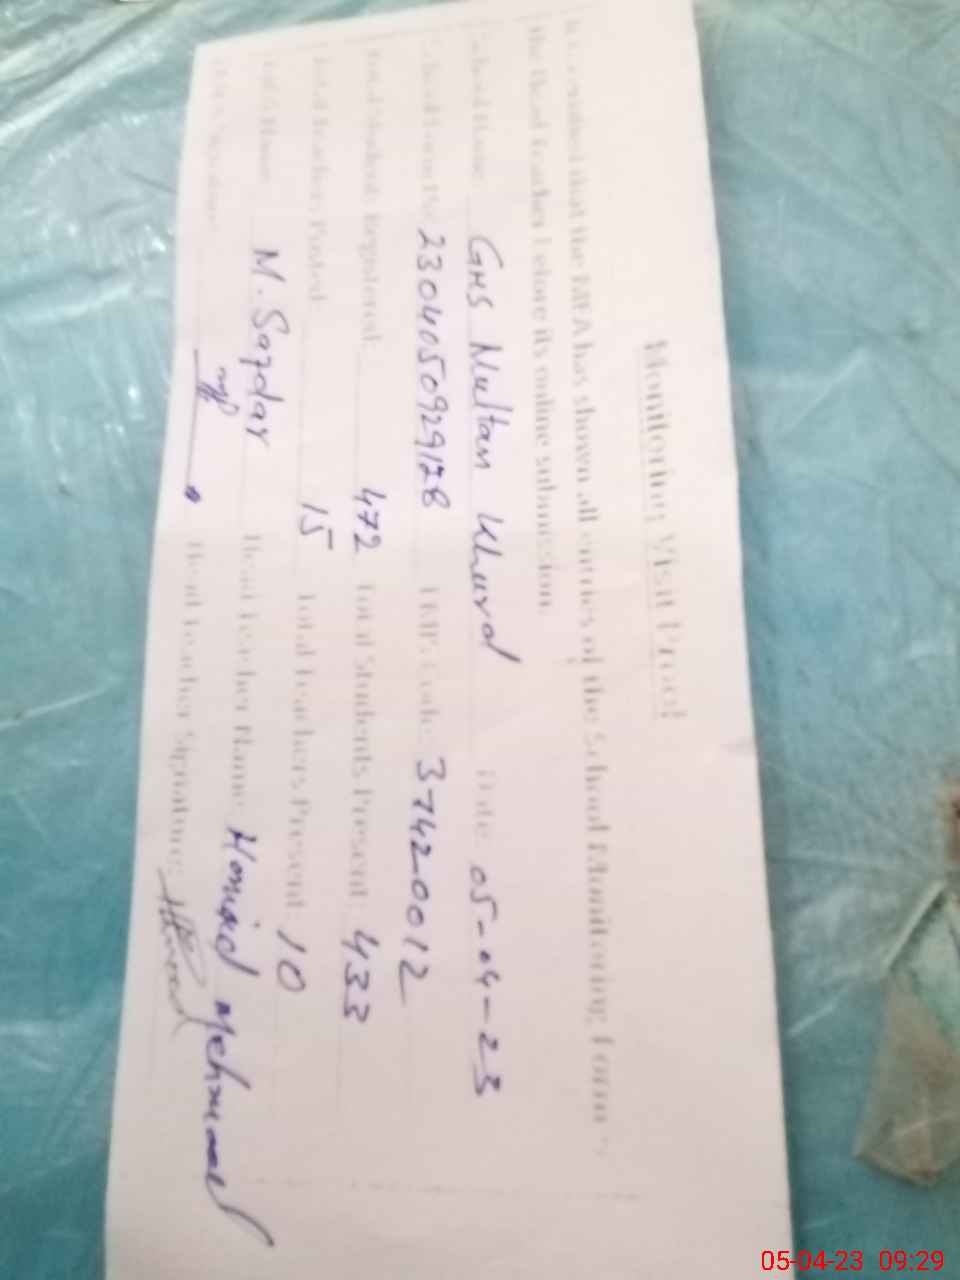 Monitoring Visit Proof
It is certified that the MEA has shown all entries of the School Monitoring Form to
the Head Teacher before its online submission.
School Name: GHS Multan Khurd Date: 05-04-23
School Form No: 2304050929128 EMIS Code: 37420012
Total Student Registered: 472 Total Students Present: 433
Total Teachers Posted: 15 Total Teachers Present: 10
MEA Name: M. Safdar Head Teacher Name: Hamid Mehmood
MEA Signature: Head Teacher Signature:
05-04-23 09:29